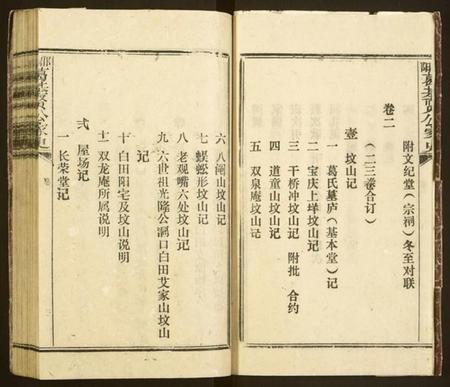 附文纪堂（宗祠）冬至对联
卷二
（二三卷合订）
壹 坟山记
一 葛氏墓庐（基本堂）记
二 宝庆上垟坟山记
三 干桥冲坟山记 附批 合约
四 道童山坟山记
五 双泉庵坟山记
六 八阄山坟山记
七 蜈蚣形坟山记
八 老观嘴六处坟山记
九 六世祖光隆公洞口白田艾家山坟山
记
十 白田阳宅及坟山说明
十一 双龙庵所属说明
贰 屋场记
一 长荣堂记